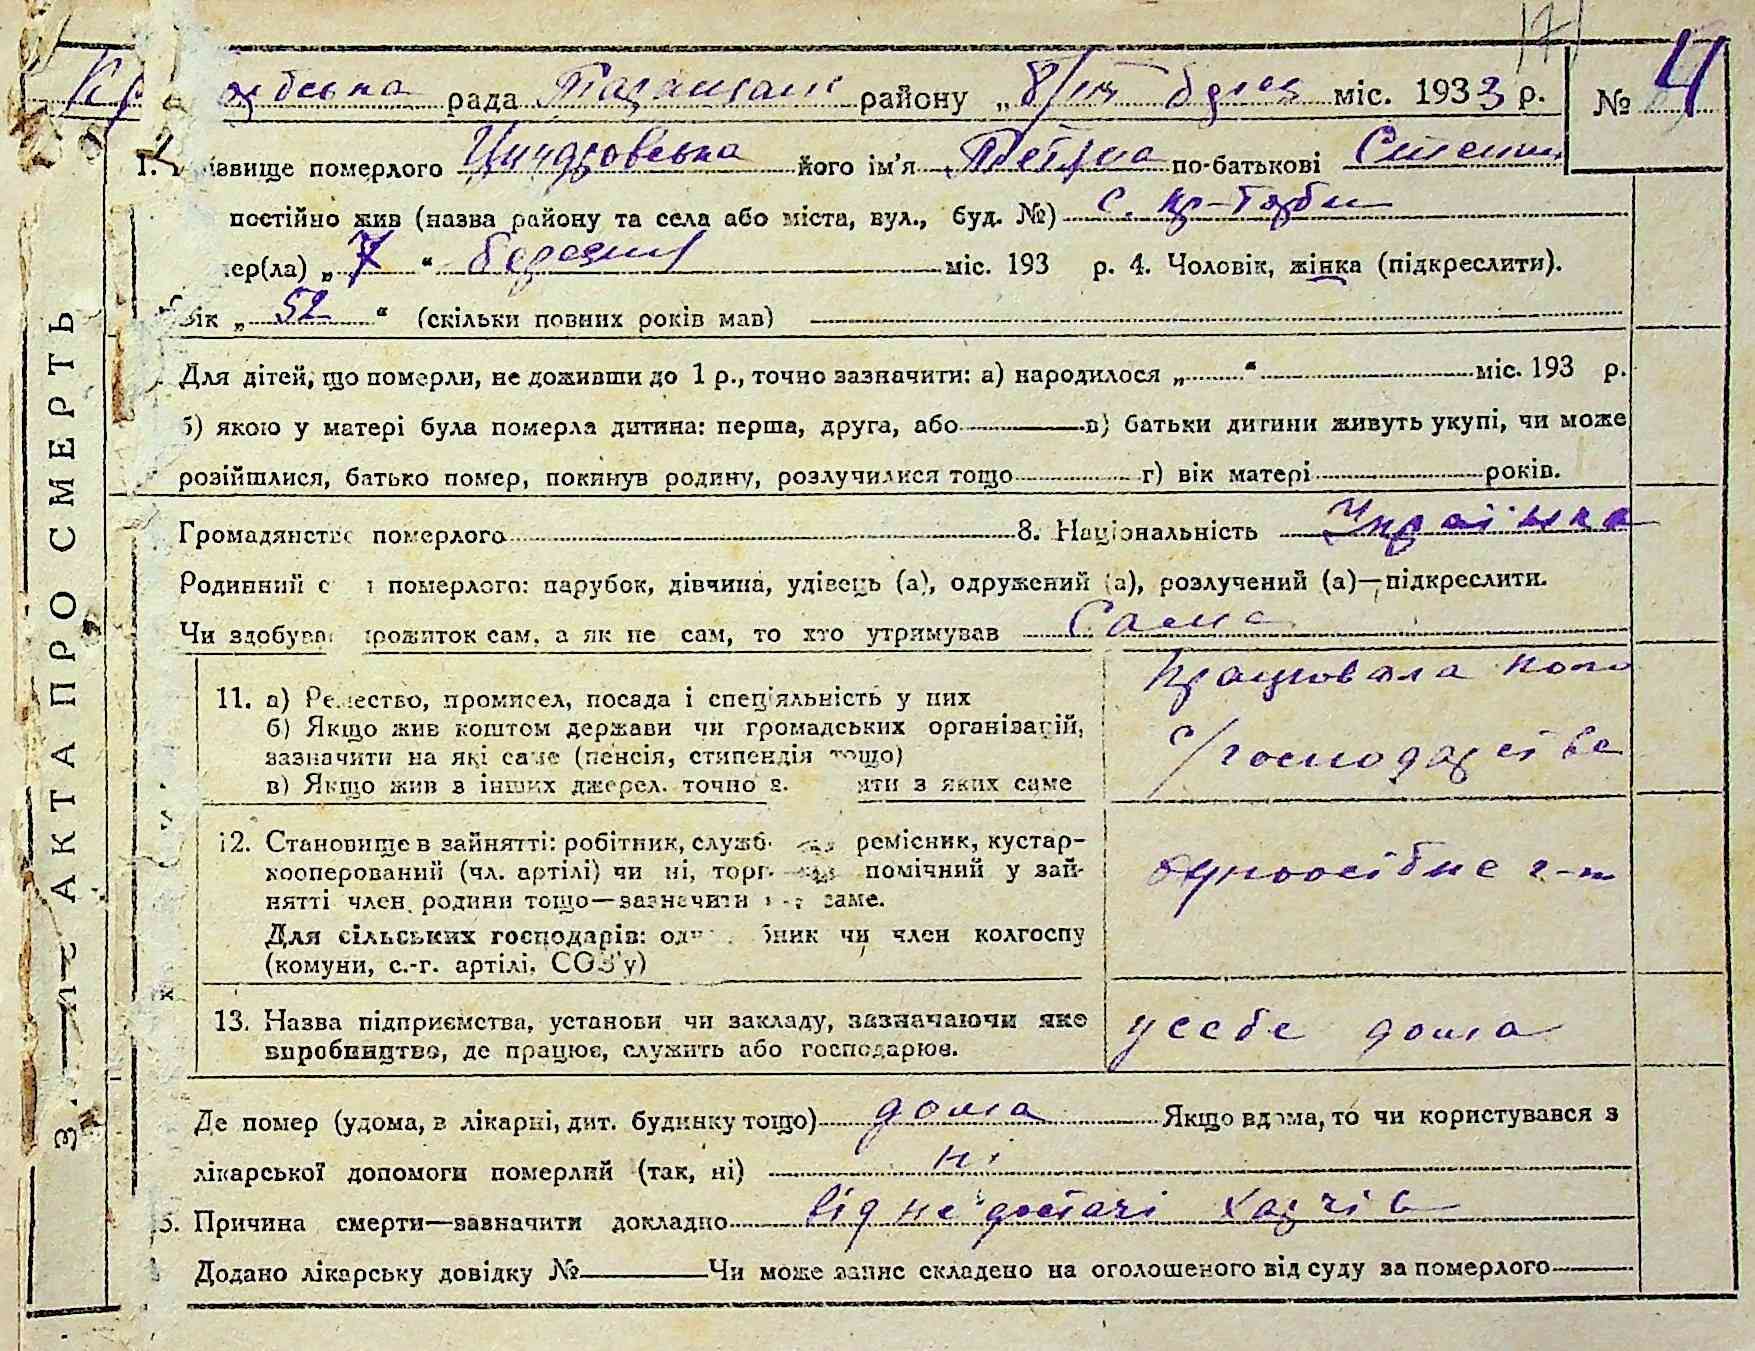 рада Таращанс району „8/III березня міс. 1933 р. № 4
звище померлого його ім'я Тетяна по-батькові Степан
постійно жив (назва району та села або міста, вул., буд. №) с.
ер(ла) „ 7 “ березня міс. 193 р. 4. Чоловік, жінка (підкреслити).
ік „ 52 “ (скільки повних років мав)
Для дітей, що померли, не доживши до 1 р., точно зазначити: а) народилося „ “ міс. 193 р.
б) якою у матері була померла дитина: перша, друга, або в) батьки дитини живуть укупі, чи може
розійшлися, батько помер, покинув родину, розлучилися тощо г) вік матері років.
Громадянство померлого 8. Національність Українка
Родинний с н померлого: парубок, дівчина, удівець (а), одружений (а), розлучений (а)—підкреслити.
Чи здобував прожиток сам, а як не сам, то хто утримував Сама
працювала коло
11. а) Ремество, промисел, посада і спеціяльність у них
б) Якщо жив коштом держави чи громадських організацій,
с/господарства
зазначити на які саме (пенсія, стипендія тощо)
в) Якщо жив з інших джерел, точно з ити з яких саме
12. Становище в зайнятті: робітник, служб ремісник, кустар-
кооперований (чл. артілі) чи ні, торг помічний у зай- одноосібне г-во
нятті член родини тощо—зазначити саме.
Для сільських господарів: од бник чи член колгоспу
(комуни, с.-г. артілі, СОЗ'у)
13. Назва підприємства, установи чи закладу, зазначаючи яке у себе дома
виробництво, де працює, служить або господарює.
Де помер (удома, в лікарні, дит. будинку тощо) дома Якщо вдома, то чи користувався з
лікарської допомоги померлий (так, ні) ні
5. Причина смерти—зазначити докладно від недостачі харчів
Додано лікарську довідку № Чи може запис складено на оголошеного від суду за померлого
АКТ ПРО СМЕРТЬ